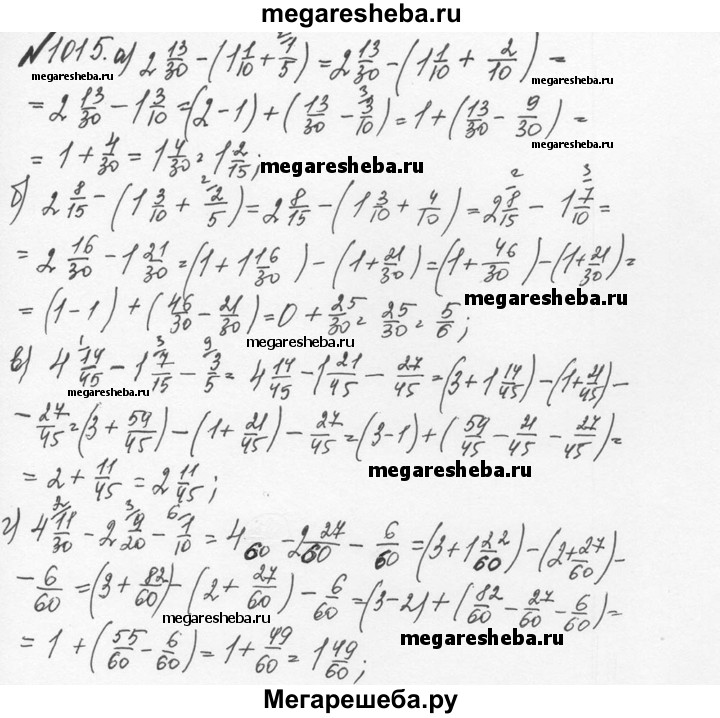 megaresheba.ru
№1015. а) 2 13/30 − (1 1/10 + 1/5) = 2 13/30 − (1 1/10 + 2/10) =
megaresheba.ru megaresheba.ru
= 2 13/30 − 1 3/10 = (2−1) + (13/30 − 3/10) = 1 + (13/30 − 9/30) =
= 1 + 4/30 = 1 4/30 = 1 2/15; megaresheba.ru
б) 2 8/15 − (1 3/10 + 2/5) = 2 8/15 − (1 3/10 + 4/10) = 2 8/15 − 1 7/10 =
= 2 16/30 − 1 21/30 = (1 + 1 16/30) − (1 + 21/30) = (1 + 46/30) − (1 + 21/30) =
megaresheba.ru
= (1−1) + (46/30 − 21/30) = 0 + 25/30 = 25/30 = 5/6;
megaresheba.ru
в) 4 14/45 − 1 7/15 − 3/5 = 4 14/45 − 1 21/45 − 27/45 = (3 + 1 14/45) − (1 + 21/45) −
megaresheba.ru megaresheba.ru
− 27/45 = (3 + 59/45) − (1 + 21/45) − 27/45 = (3−1) + (59/45 − 21/45 − 27/45) =
= 2 + 11/45 = 2 11/45; megaresheba.ru
г) 4 11/30 − 2 9/20 − 1/10 = 4 /60 − 2 27/60 − 6/60 = (3 + 1 22/60) − (2 + 27/60) −
− 6/60 = (3 + 82/60) − (2 + 27/60) − 6/60 = (3−2) + (82/60 − 27/60 − 6/60) =
megaresheba.ru
= 1 + (55/60 − 6/60) = 1 + 49/60 = 1 49/60; megaresheba.ru
Мегарешеба.ру